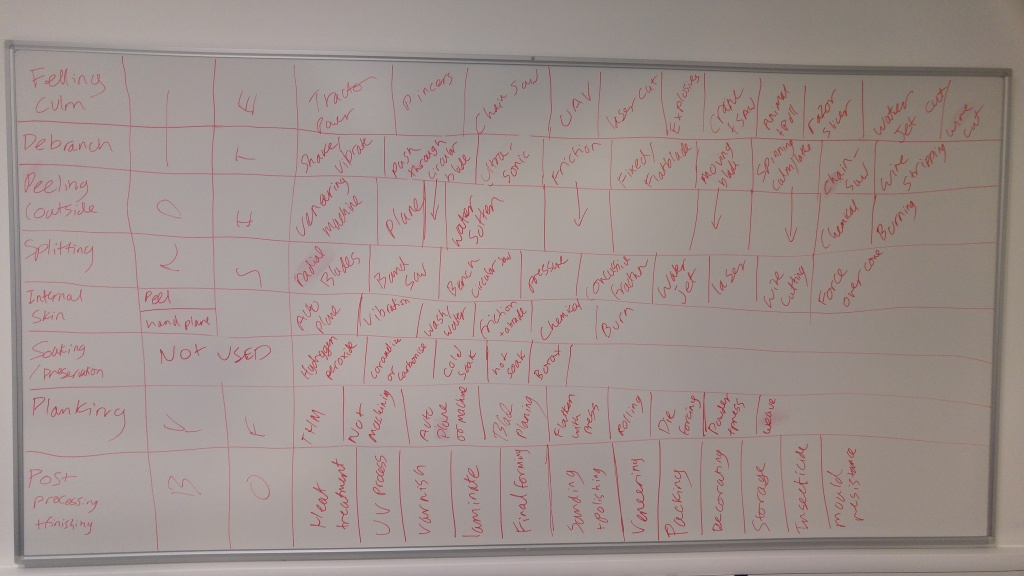 Felling
Culm
I
E
Tractor
Pincers
Chain Saw
UAV
laser cut
Explosives
Crane
+ saw
Animal
+ pull
razor
slicer
water
jet cut
wire
cut
Debranch
T
Shake/
vibrate
push
through
circular
blade
Ultra-
sonic
Friction
Fixed/
Flatblade
moving
blade
Spinning
Chain-
saw
wire
Stripping
Peeling
(outside
O
I
Veneering
machine
Plane
↓
water
soften
↓
↓
↓
Chemical
Burning
Splitting
S
Radial
Blades
Band
saw
Bench
circular saw
pressure
water
jet
laser
wire
cutting
Force
over cone
Internal
Skin
Peel
hand plane
Auto
plane
vibration
wash/
water
friction
Chemical
Burn
Soaking
/preservation
NOT USED
Hydrogen
peroxide
caramelise
or
carbonise
Cold
Soak
hot
soak
Borax
Planking
F
THM
Not
machining
Auto
Plane
or machine
planing
Flatten
with
press
rolling
Die
forming
Powder
+press
weave
Post
processing
+finishing
B
O
Heat
treatment
UV process
Varnish
laminate
Final forming
Sanding
+polishing
Veneering
Packing
Decorating
Storage
Insecticide
mould